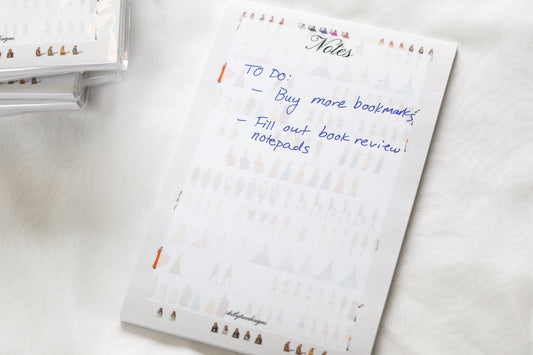 Notes
TO DO:
- Buy more bookmarks
- Fill out book review
notepads